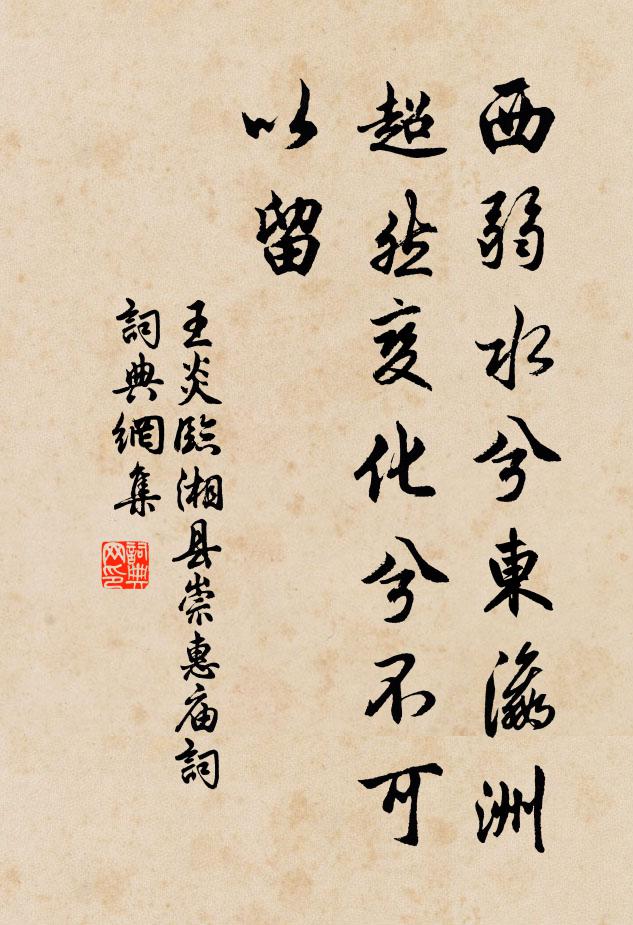 西弱水兮東瀛洲
超然变化兮不可
以留
王炎臨湘县崇惠庙詞
詞典網集
詞典
网印